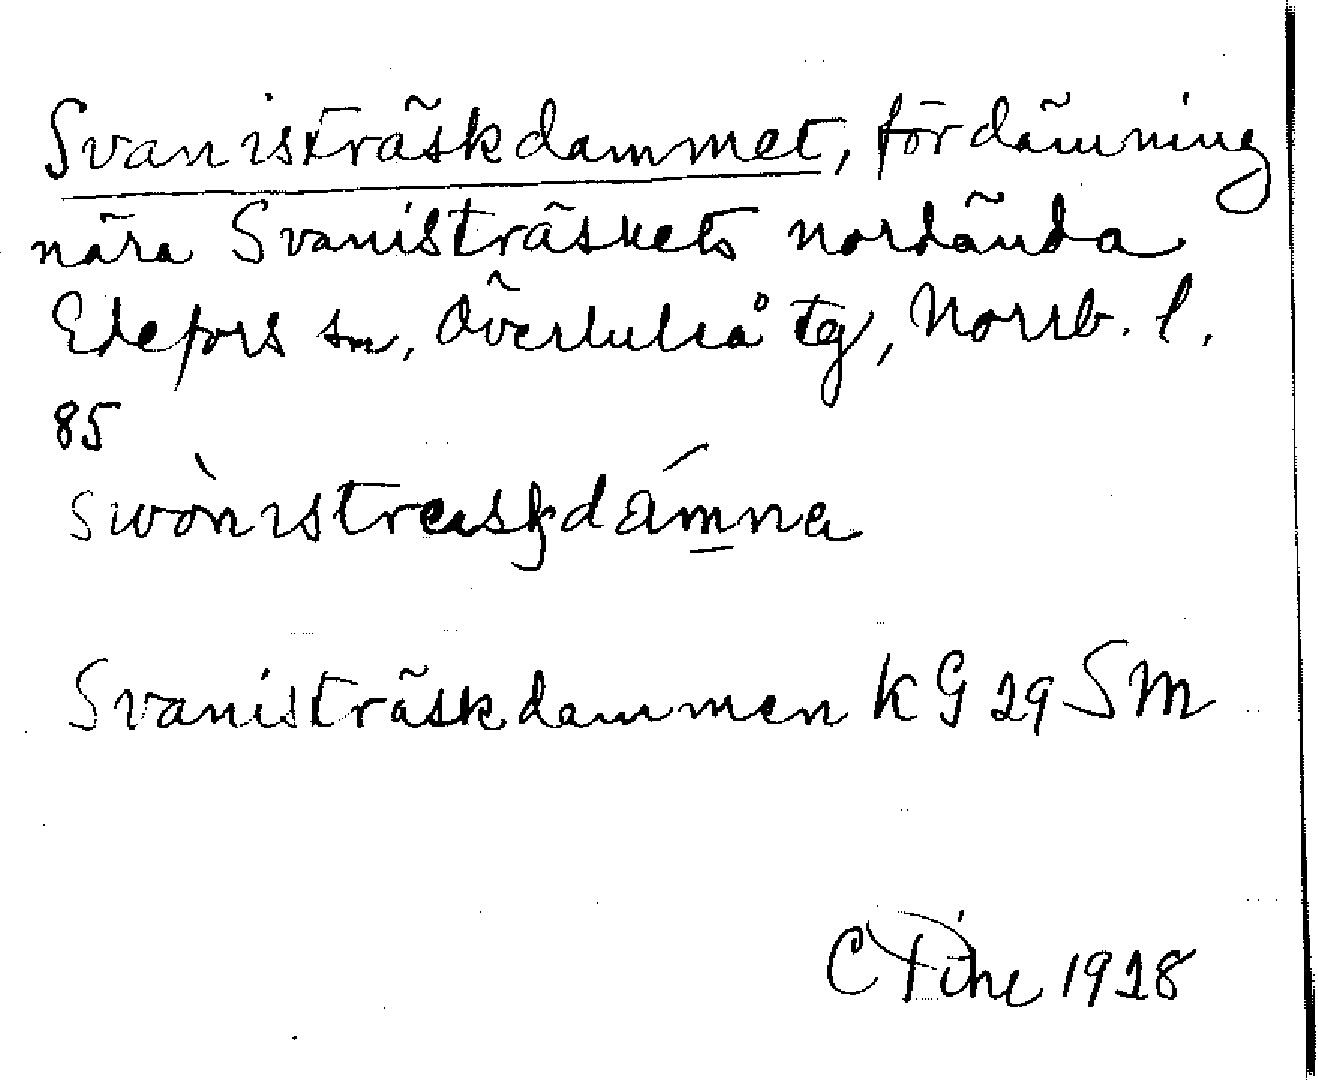 Svanisträskdammet, fördämning
nära Svanisträskets nordända
Edefors sn, Överluleå tg, Norrb. l.
85
swònistreskdámna
Svanisträskdammen KG 29 SM
C Pihl 1928